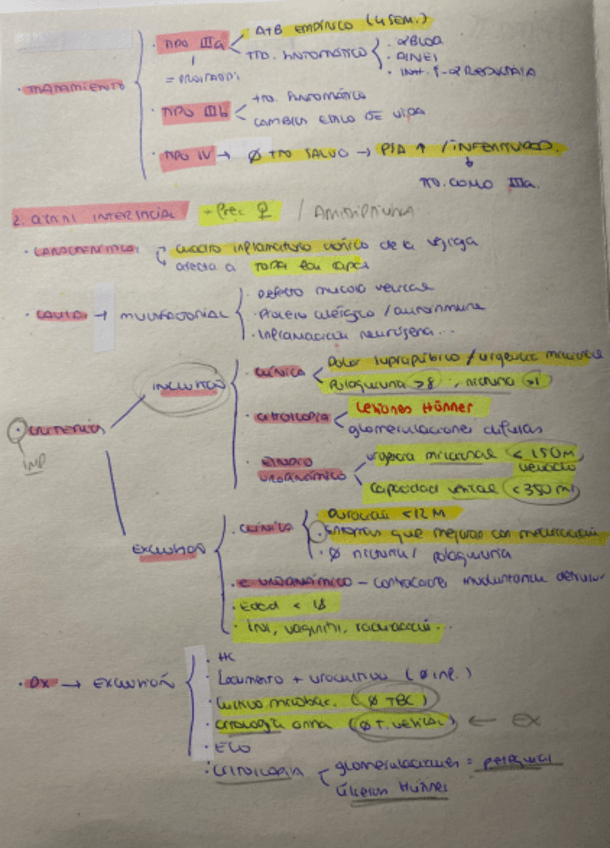 · TRATAMIENTO
· TIPO IIIa
ATB EMPÍRICO (4 SEM.)
TTO. SINTOMÁTICO
· αBLOQ
· AINEs
· INH. 5-α REDUCTASA
· TIPO IIIb
TTO. SINTOMÁTICO
CAMBIOS ESTILO DE VIDA
· TIPO IV → Ø TTO SALVO → PSA ↑ / INFERTILIDAD.
TTO. COMO IIIa.
2. CISTITIS INTERSTICIAL → Prec ♀ / AMITRIPTILINA
· CARACTERÍSTICAS
cuadro inflamatorio crónico de la vejiga
afecta a todas sus capas
· CAUSA → MULTIFACTORIAL
· Defecto mucosa vesical
· Proceso alérgico / autoinmune
· Inflamación neurógena...
· CRITERIOS
IMP
INCLUSIÓN
· CLÍNICA
Dolor suprapúbico / urgencia miccional
Polaquiuria >8, nicturia >1
· CISTOSCOPIA
Lesiones Hünner
glomerulaciones difusas
· ESTUDIO URODINÁMICO
urgencia miccional <150 ml
Capacidad vesical <350 ml
EXCLUSIÓN
· CLÍNICA
Duración <12 M
· Síntomas que mejoran con medicación
· Ø nicturia / polaquiuria
· E. URODINÁMICO - contracciones involuntarias detrusor
· Edad < 18
· ITUs, vaginitis, radiación...
· DX → EXCLUSIÓN
· HC
· Sedimento + urocultivo (Ø inf.)
· Cultivo micobac. (Ø TBC)
· Citología orina (Ø T. VESICAL) ← EX
· ECO
· CISTOSCOPIA
glomerulaciones = petequias
Úlceras Hünner